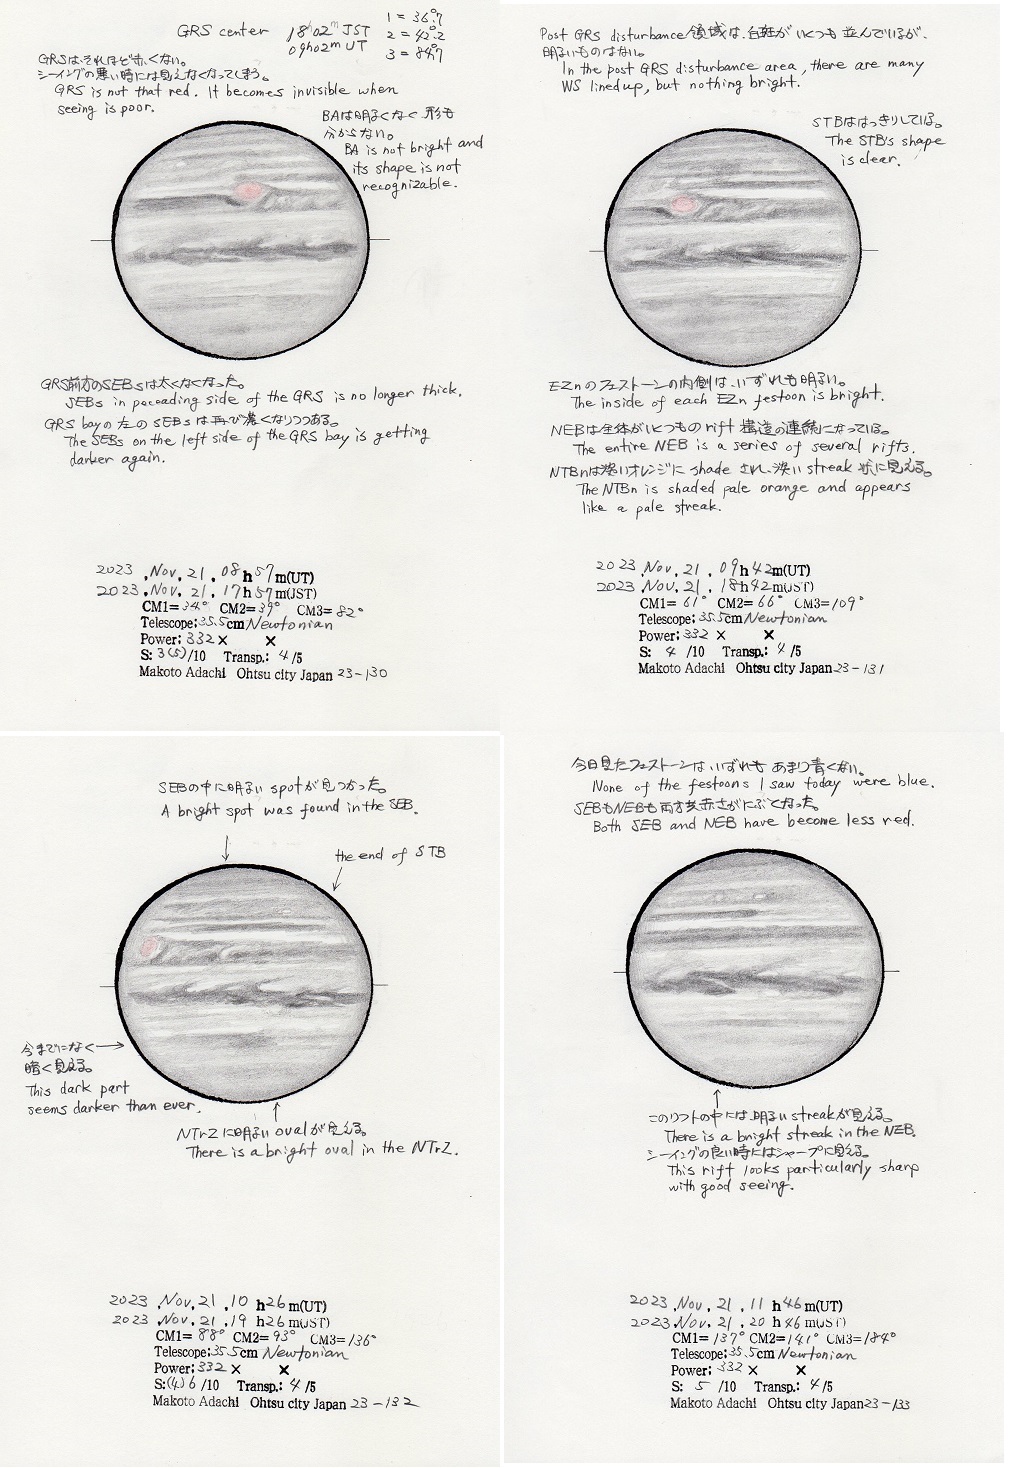 GRS center 18h02m JST
09h02m UT
1 = 36.°7
2 = 42.°2
3 = 84.°7
GRSは、それほど赤くない。
シーイングの悪い時には見えなくなってしまう。
GRS is not that red. It becomes invisible when
seeing is poor.
BAは明るくなく形も
分からない。
BA is not bright and
its shape is not
recognizable.
GRS前方のSEBsは太くなくなった。
SEBs in preceding side of the GRS is no longer thick.
GRS bayの左のSEBsは再び濃くなりつつある。
The SEBs on the left side of the GRS bay is getting
darker again.
2023 , Nov, 21 , 08 h 57 m(UT)
2023 , Nov, 21 , 17 h 57 m(JST)
CM1= 34° CM2= 39° CM3= 82°
Telescope: 35.5cm Newtonian
Power: 332 × ×
S: 3(5)/10 Transp.: 4/5
Makoto Adachi Ohtsu city Japan 23-130
Post GRS disturbance領域は、白斑がいくつも並んでいるが、
明るいものはない。
In the post GRS disturbance area, there are many
WS lined up, but nothing bright.
STBははっきりしている。
The STB's shape
is clear.
EZnのフェストーンの内側は、いずれも明るい。
The inside of each EZn festoon is bright.
NEBは全体がいくつものrift構造の連続になっている。
The entire NEB is a series of several rifts.
NTBnは淡いオレンジにshadeされ、淡いstreak状に見える。
The NTBn is shaded pale orange and appears
like a pale streak.
2023 , Nov, 21 , 09 h 42 m(UT)
2023 , Nov, 21 , 18 h 42 m(JST)
CM1= 61° CM2= 66° CM3= 109°
Telescope: 35.5cm Newtonian
Power: 332 × ×
S: 4 /10 Transp.: 4/5
Makoto Adachi Ohtsu city Japan 23-131
SEBの中に明るいspotが見つかった。
A bright spot was found in the SEB.
the end of STB
今までになく
暗く見える。
This dark part
seems darker than ever.
NTrZに明るいovalが見える。
There is a bright oval in the NTrZ.
2023 , Nov, 21 , 10 h 26 m(UT)
2023 , Nov, 21 , 19 h 26 m(JST)
CM1= 88° CM2= 93° CM3= 136°
Telescope: 35.5cm Newtonian
Power: 332 × ×
S: (4)6 /10 Transp.: 4/5
Makoto Adachi Ohtsu city Japan 23-132
今日見たフェストーンは、いずれもあまり青くない。
None of the festoons I saw today were blue.
SEBもNEBも両方共赤さがにぶくなった。
Both SEB and NEB have become less red.
このリフトの中には、明るいstreakが見える。
There is a bright streak in the NEB.
シーイングの良い時にはシャープに見える。
This rift looks particularly sharp
with good seeing.
2023 , Nov, 21 , 11 h 46 m(UT)
2023 , Nov, 21 , 20 h 46 m(JST)
CM1= 137° CM2= 141° CM3= 184°
Telescope: 35.5cm Newtonian
Power: 332 × ×
S: 5 /10 Transp.: 4/5
Makoto Adachi Ohtsu city Japan 23-133